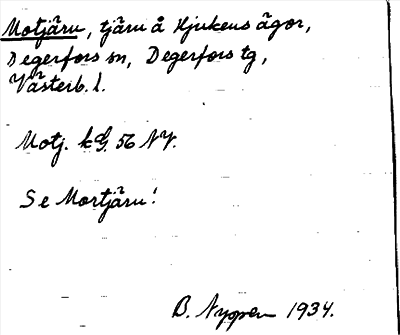 Motjärn, tjärn å Hjukens ägor,
Degerfors sn, Degerfors tg,
Västerb. l.
Motj. kG. 56 NV.
Se Mortjärn!
B. Nygren 1934.